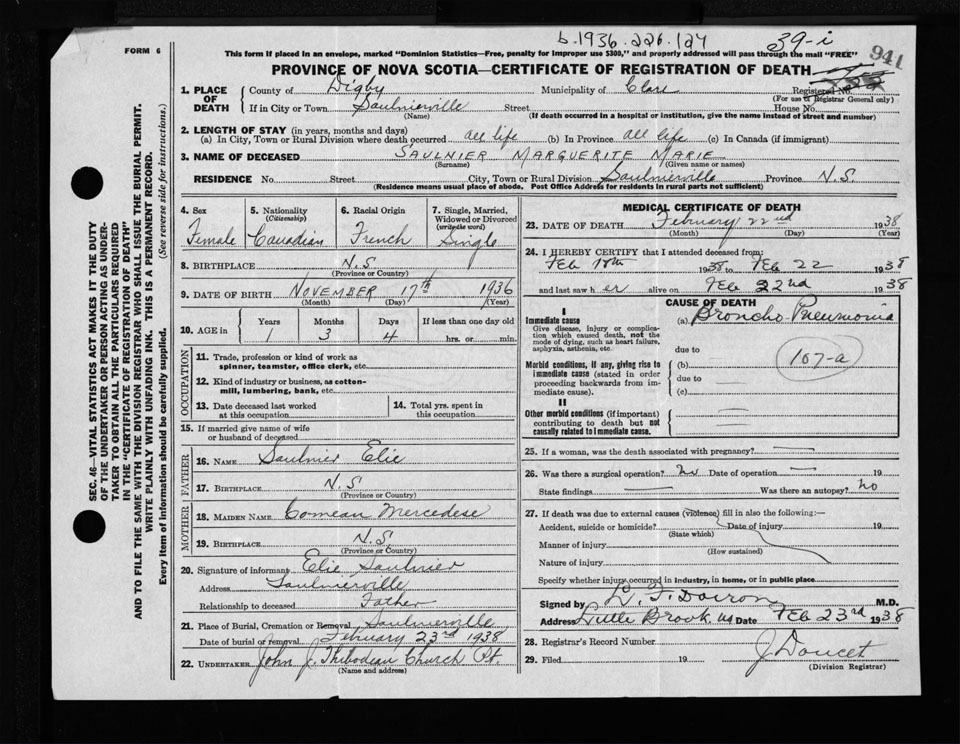 b.1936.226.127
39-i
941
FORM 6
This form if placed in an envelope, marked "Dominion Statistics—Free, penalty for improper use $300," and properly addressed will pass through the mail "FREE"
PROVINCE OF NOVA SCOTIA—CERTIFICATE OF REGISTRATION OF DEATH
SEC. 46—VITAL STATISTICS ACT MAKES IT THE DUTY
OF THE UNDERTAKER OR PERSON ACTING AS UNDER-
TAKER TO OBTAIN ALL THE PARTICULARS REQUIRED
IN THE "CERTIFICATE OF REGISTRATION OF DEATH"
AND TO FILE THE SAME WITH THE DIVISION REGISTRAR WHO SHALL ISSUE THE BURIAL PERMIT.
WRITE PLAINLY WITH UNFADING INK. THIS IS A PERMANENT RECORD.
Every item of information should be carefully supplied. (See reverse side for instructions.)
1. PLACE OF DEATH County of Digby Municipality of Clare Registered No.
(For use of Registrar General only)
If in City or Town Saulnierville Street House No.
(Name) (If death occurred in a hospital or institution, give the name instead of street and number)
2. LENGTH OF STAY (in years, months and days)
(a) In City, Town or Rural Division where death occurred all life (b) In Province all life (c) In Canada (if immigrant)
3. NAME OF DECEASED SAULNIER MARGUERITE MARIE
(Surname) (Given name or names)
RESIDENCE No. Street City, Town or Rural Division Saulnierville Province N.S.
(Residence means usual place of abode. Post Office Address for residents in rural parts not sufficient)
4. Sex Female
5. Nationality (Citizenship) Canadian
6. Racial Origin French
7. Single, Married, Widowed or Divorced (write the word) Single
8. BIRTHPLACE N.S.
(Province or Country)
9. DATE OF BIRTH NOVEMBER 17th 1936
(Month) (Day) (Year)
10. AGE in Years Months Days If less than one day old
1 3 4 hrs. or min.
OCCUPATION
11. Trade, profession or kind of work as
spinner, teamster, office clerk, etc.
12. Kind of industry or business, as cotton-
mill, lumbering, bank, etc.
13. Date deceased last worked
at this occupation
14. Total yrs. spent in
this occupation
15. If married give name of wife
or husband of deceased
FATHER
16. NAME Saulnier Elie
17. BIRTHPLACE N.S
(Province or Country)
MOTHER
18. MAIDEN NAME Comeau Mercedese
19. BIRTHPLACE N.S.
(Province or Country)
20. Signature of informant Elie Saulnier
Address Saulnierville
Relationship to deceased Father
21. Place of Burial, Cremation or Removal Saulnierville
Date of burial or removal February 23rd 1938
22. UNDERTAKER John J. Thibodeau Church Pt.
(Name and address)
MEDICAL CERTIFICATE OF DEATH
23. DATE OF DEATH February 22nd 1938
(Month) (Day) (Year)
24. I HEREBY CERTIFY that I attended deceased from:
Feb 18th 1938 to Feb 22 1938
and last saw h er alive on Feb 22nd 1938
CAUSE OF DEATH
I
Immediate cause
Give disease, injury or complica-
tion which caused death, not the
mode of dying, such as heart failure,
asphyxia, asthenia, etc.
(a) Broncho-Pneumonia
due to
Morbid conditions, if any, giving rise to
immediate cause (stated in order
proceeding backwards from im-
mediate cause).
(b)
due to
(c)
107-a
II
Other morbid conditions (if important)
contributing to death but not
causally related to immediate cause.
25. If a woman, was the death associated with pregnancy?
26. Was there a surgical operation? no Date of operation 19
State findings Was there an autopsy? no
27. If death was due to external causes (violence) fill in also the following:—
Accident, suicide or homicide? Date of injury 19
(State which)
Manner of injury
(How sustained)
Nature of injury
Specify whether injury occurred in industry, in home, or in public place
Signed by L. F. Doiron M.D.
Address Little Brook, NS Feb 23rd 1938
28. Registrar's Record Number
29. Filed 19 J Doucet
(Division Registrar)